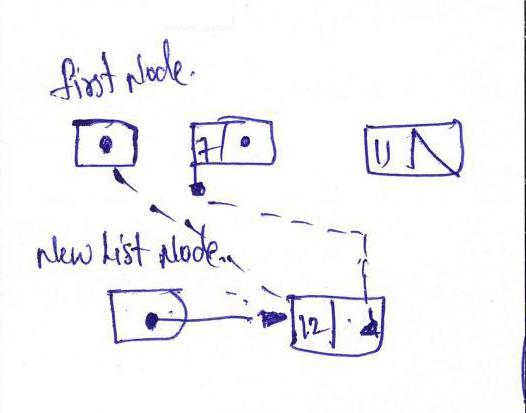 first Node.
7
11
New List Node.
12